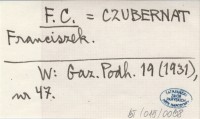 F. C. = CZUBERNAT
Franciszek.
W: Gaz. Podh. 19 (1931),
nr 47.